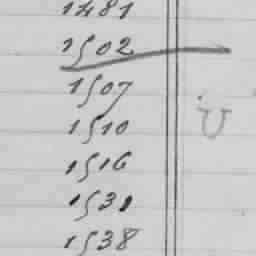 1481
1502
1507
1510
1516
1531
1538